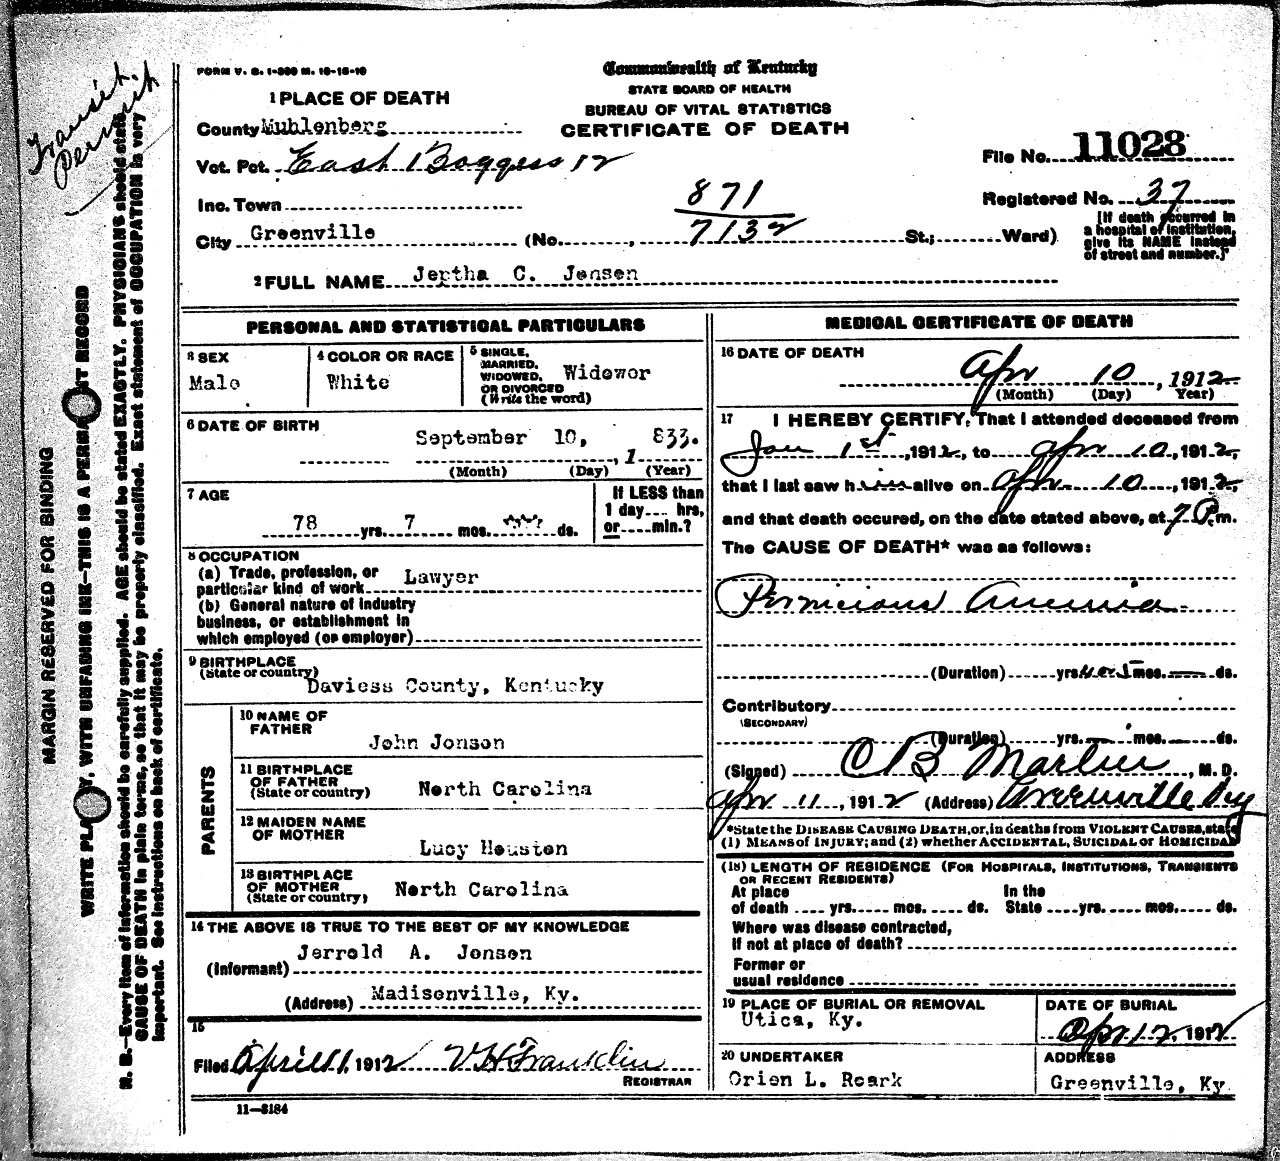 Transit
Permit
MARGIN RESERVED FOR BINDING
WRITE PLA Y, WITH UNFADING INK—THIS IS A PERMA NT RECORD
N. B.—Every item of information should be carefully supplied. AGE should be stated EXACTLY. PHYSICIANS should state
CAUSE OF DEATH in plain terms, so that it may be properly classified. Exact statement of OCCUPATION is very
important. See instructions on back of certificate.
FORM V. S. 1-300 M. 10-15-10
Commonwealth of Kentucky
STATE BOARD OF HEALTH
BUREAU OF VITAL STATISTICS
CERTIFICATE OF DEATH
1 PLACE OF DEATH
County Muhlenberg
Vot. Pct. East Boggess 12
Inc. Town
City Greenville (No. , St.; Ward)
871
7132
File No. 11028
Registered No. 37
[If death occurred in
a hospital of institution,
give its NAME instead
of street and number.]
2 FULL NAME Jeptha C. Jonson
PERSONAL AND STATISTICAL PARTICULARS
3 SEX
Male
4 COLOR OR RACE
White
5 SINGLE,
MARRIED,
WIDOWED,
OR DIVORCED
(Write the word)
Widower
6 DATE OF BIRTH
September 10, 1 833.
(Month) (Day) (Year)
7 AGE
78 yrs. 7 mos. ds.
If LESS than
1 day.... hrs,
or.....min.?
8 OCCUPATION
(a) Trade, profession, or
particular kind of work Lawyer
(b) General nature of industry
business, or establishment in
which employed (or employer)
9 BIRTHPLACE
(State or country)
Daviess County, Kentucky
PARENTS
10 NAME OF
FATHER
John Jonson
11 BIRTHPLACE
OF FATHER
(State or country)
North Carolina
12 MAIDEN NAME
OF MOTHER
Lucy Houston
13 BIRTHPLACE
OF MOTHER
(State or country)
North Carolina
14 THE ABOVE IS TRUE TO THE BEST OF MY KNOWLEDGE
(Informant) Jerrold A. Jonson
(Address) Madisonville, Ky.
15
Filed April 11, 1912 V H Franklin
REGISTRAR
11—3184
MEDICAL CERTIFICATE OF DEATH
16 DATE OF DEATH
Apr 10, 1912
(Month) (Day) (Year)
17 I HEREBY CERTIFY, That I attended deceased from
Jan 1st, 1912, to Apr 10, 1912,
that I last saw him alive on Apr 10, 1912,
and that death occured, on the date stated above, at 7 P.m.
The CAUSE OF DEATH* was as follows:
Pernicious Anemia
(Duration) yrs. mos. ds.
Contributory
(SECONDARY)
(Duration) yrs. mos. ds.
(Signed) O B Martin, M. D.
Apr 11, 1912 (Address) Greenville Ky
*State the DISEASE CAUSING DEATH, or, in deaths from VIOLENT CAUSES, state
(1) MEANS of INJURY; and (2) whether ACCIDENTAL, SUICIDAL or HOMICIDAL
(18) LENGTH OF RESIDENCE (FOR HOSPITALS, INSTITUTIONS, TRANSIENTS
OR RECENT RESIDENTS)
At place In the
of death .... yrs. mos. ds. State yrs. mos. ds.
Where was disease contracted,
If not at place of death?
Former or
usual residence
19 PLACE OF BURIAL OR REMOVAL
Utica, Ky.
DATE OF BURIAL
Apr 12, 1912
20 UNDERTAKER
Orien L. Roark
ADDRESS
Greenville, Ky